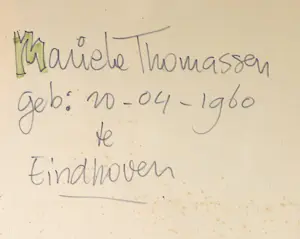 Mariele Thomassen
geb: 20-04-1960
te
Eindhoven